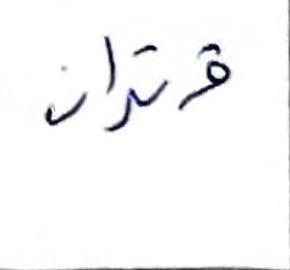 قرتدان